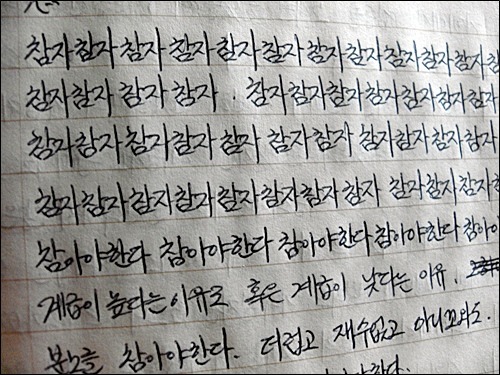 참자참자참자 참자참자참자 참자참자참자참자
참자참자 참자 참자 . 참자참자참자참자참자참자참자
참자참자 참자참자 참자 참자 참자 참자참자참자참자
참자참자 참자참자참자참자참자 참자 참자참자참자
참아야한다 참아야한다 참아야한다참아야한다 참아
계급이 높다는 이유로 혹은 계급이 낮다는 이유.
분노를 참아야한다. 더럽고 재수없고 아니꼬와도.